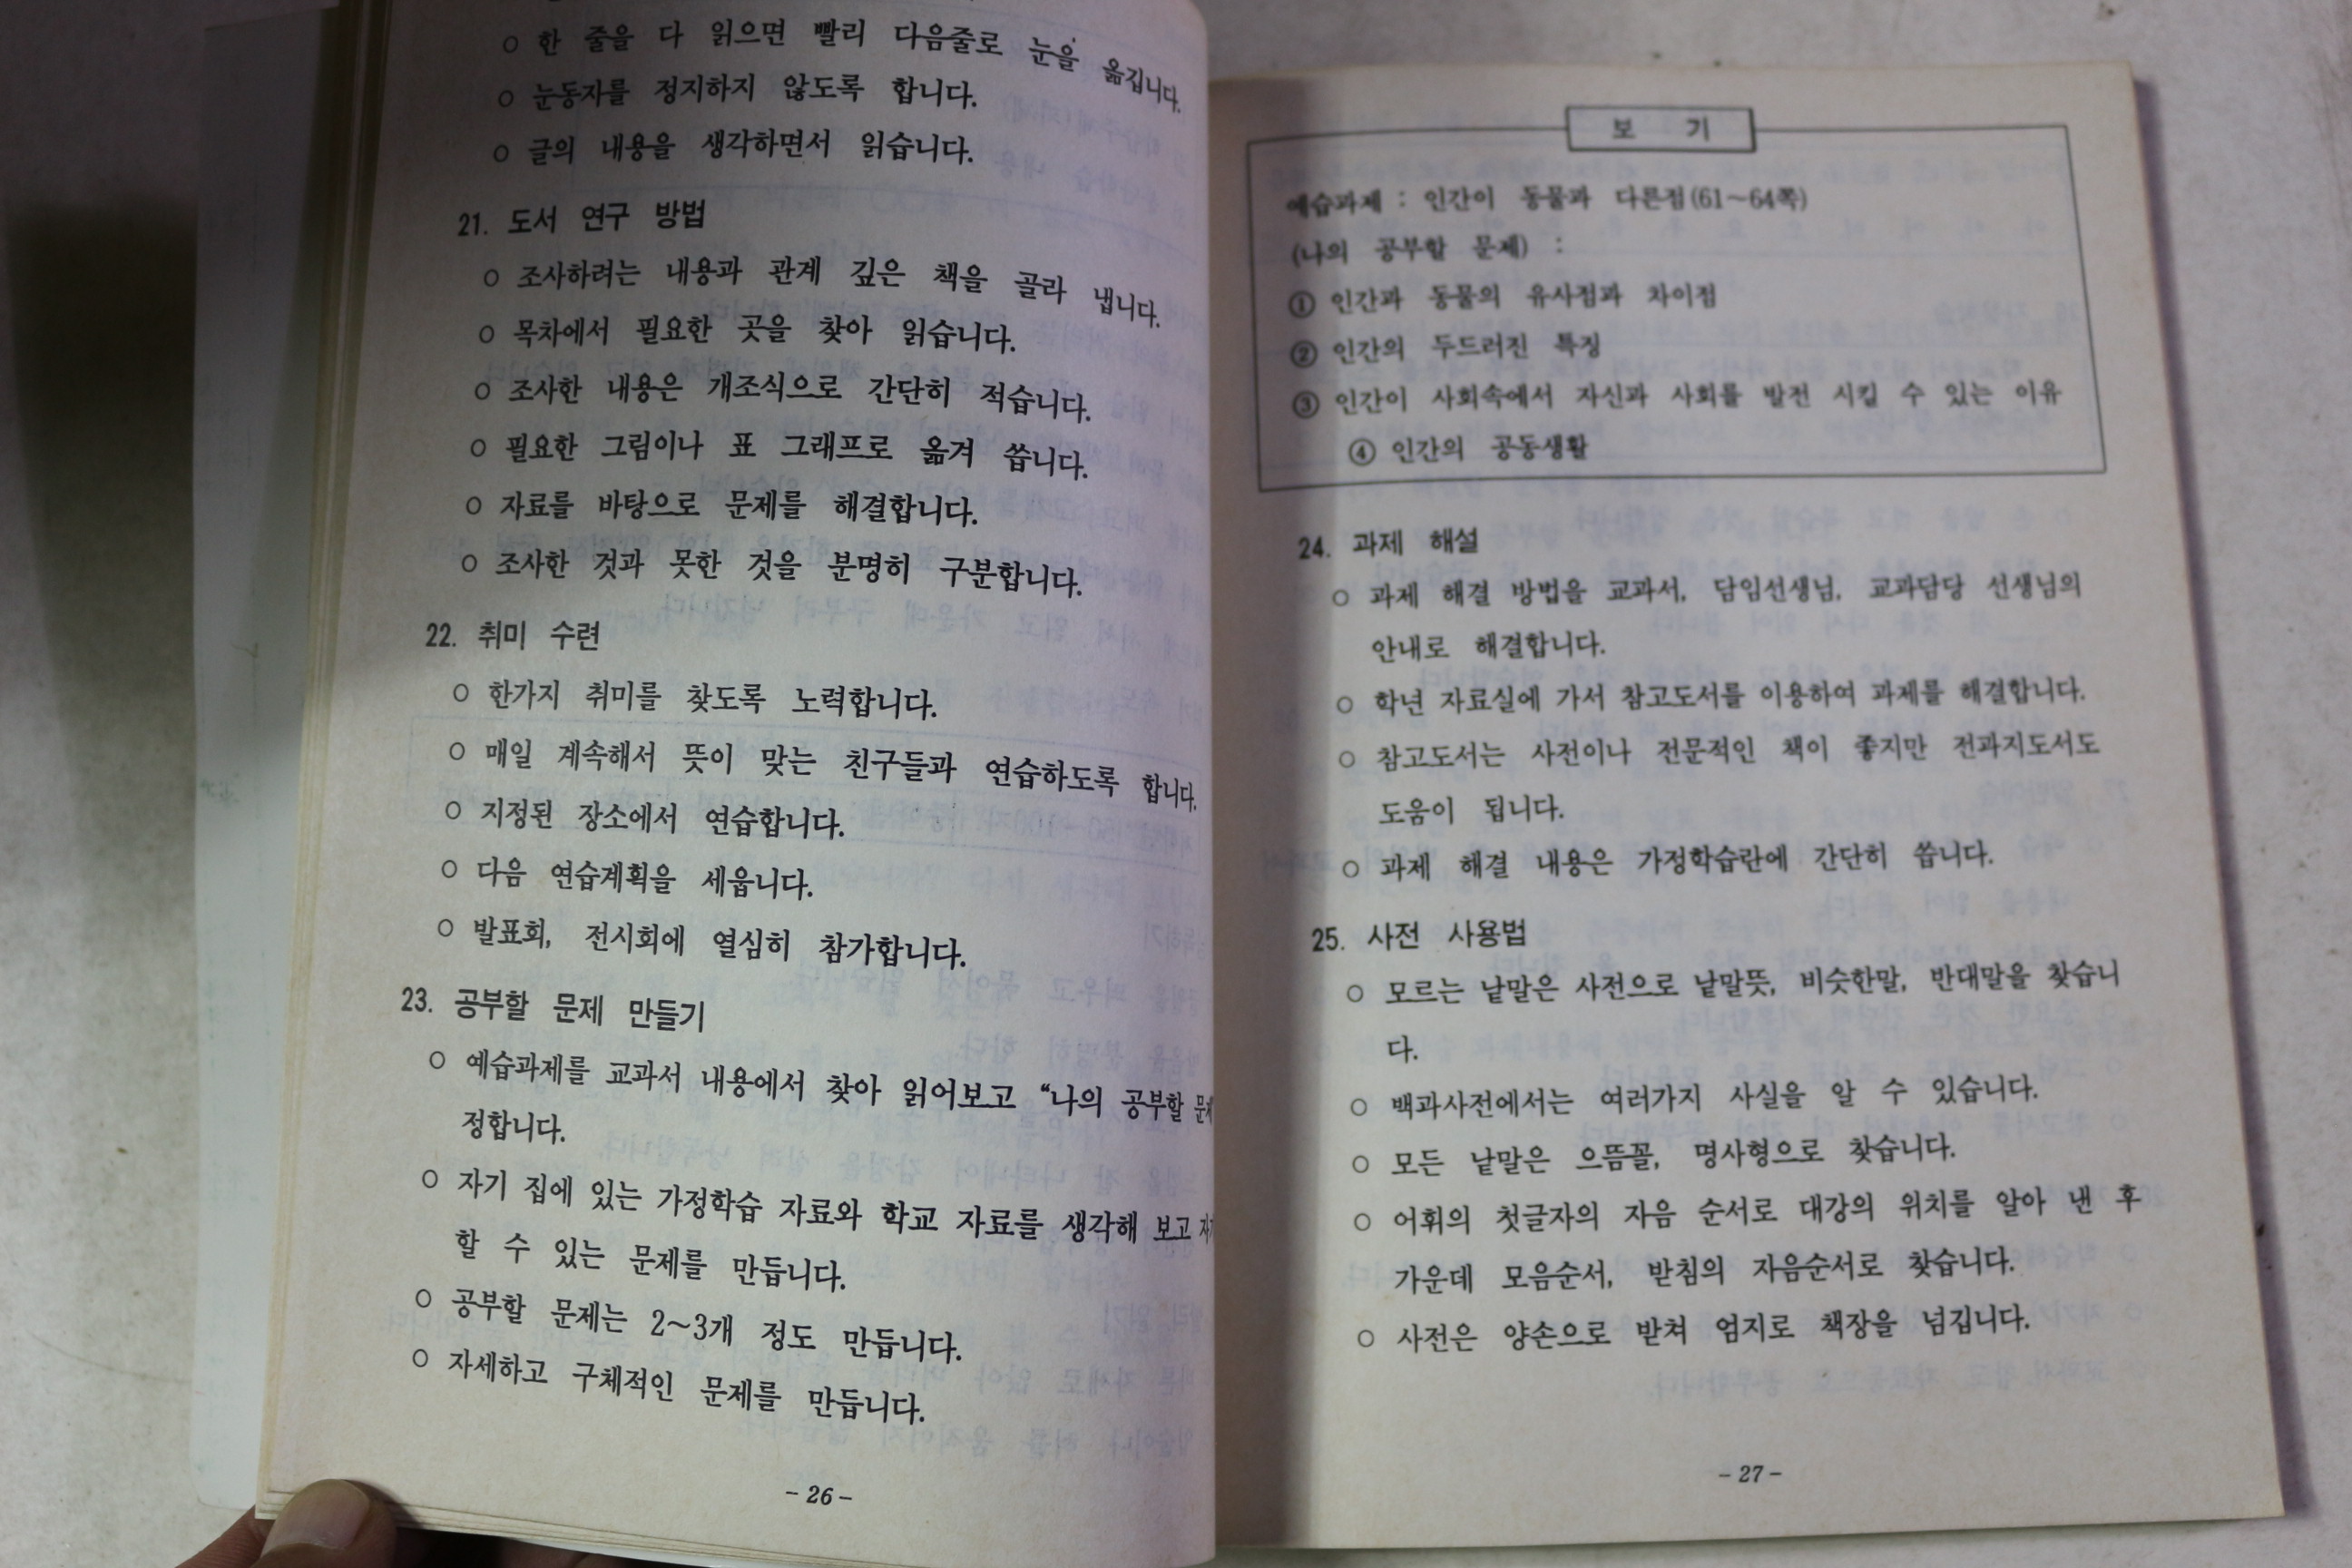 ○ 한 줄을 다 읽으면 빨리 다음줄로 눈을 옮깁니다.
○ 눈동자를 정지하지 않도록 합니다.
○ 글의 내용을 생각하면서 읽습니다.
21. 도서 연구 방법
○ 조사하려는 내용과 관계 깊은 책을 골라 냅니다.
○ 목차에서 필요한 곳을 찾아 읽습니다.
○ 조사한 내용은 개조식으로 간단히 적습니다.
○ 필요한 그림이나 표 그래프로 옮겨 씁니다.
○ 자료를 바탕으로 문제를 해결합니다.
○ 조사한 것과 못한 것을 분명히 구분합니다.
22. 취미 수련
○ 한가지 취미를 찾도록 노력합니다.
○ 매일 계속해서 뜻이 맞는 친구들과 연습하도록 합니다.
○ 지정된 장소에서 연습합니다.
○ 다음 연습계획을 세웁니다.
○ 발표회, 전시회에 열심히 참가합니다.
23. 공부할 문제 만들기
○ 예습과제를 교과서 내용에서 찾아 읽어보고 “나의 공부할
정합니다.
○ 자기 집에 있는 가정학습 자료와 학교 자료를 생각해 보고
할 수 있는 문제를 만듭니다.
○ 공부할 문제는 2～3개 정도 만듭니다.
○ 자세하고 구체적인 문제를 만듭니다.
- 26 -
보 기
예습과제 : 인간이 동물과 다른점(61～64쪽)
(나의 공부할 문제) :
① 인간과 동물의 유사점과 차이점
② 인간의 두드러진 특징
③ 인간이 사회속에서 자신과 사회를 발전 시킬 수 있는 이유
④ 인간의 공동생활
24. 과제 해설
○ 과제 해결 방법을 교과서, 담임선생님, 교과담당 선생님의
안내로 해결합니다.
○ 학년 자료실에 가서 참고도서를 이용하여 과제를 해결합니다.
○ 참고도서는 사전이나 전문적인 책이 좋지만 전과지도서도
도움이 됩니다.
○ 과제 해결 내용은 가정학습란에 간단히 씁니다.
25. 사전 사용법
○ 모르는 낱말은 사전으로 낱말뜻, 비슷한말, 반대말을 찾습니
다.
○ 백과사전에서는 여러가지 사실을 알 수 있습니다.
○ 모든 낱말은 으뜸꼴, 명사형으로 찾습니다.
○ 어휘의 첫글자의 자음 순서로 대강의 위치를 알아 낸 후
가운데 모음순서, 받침의 자음순서로 찾습니다.
○ 사전은 양손으로 받쳐 엄지로 책장을 넘깁니다.
- 27 -